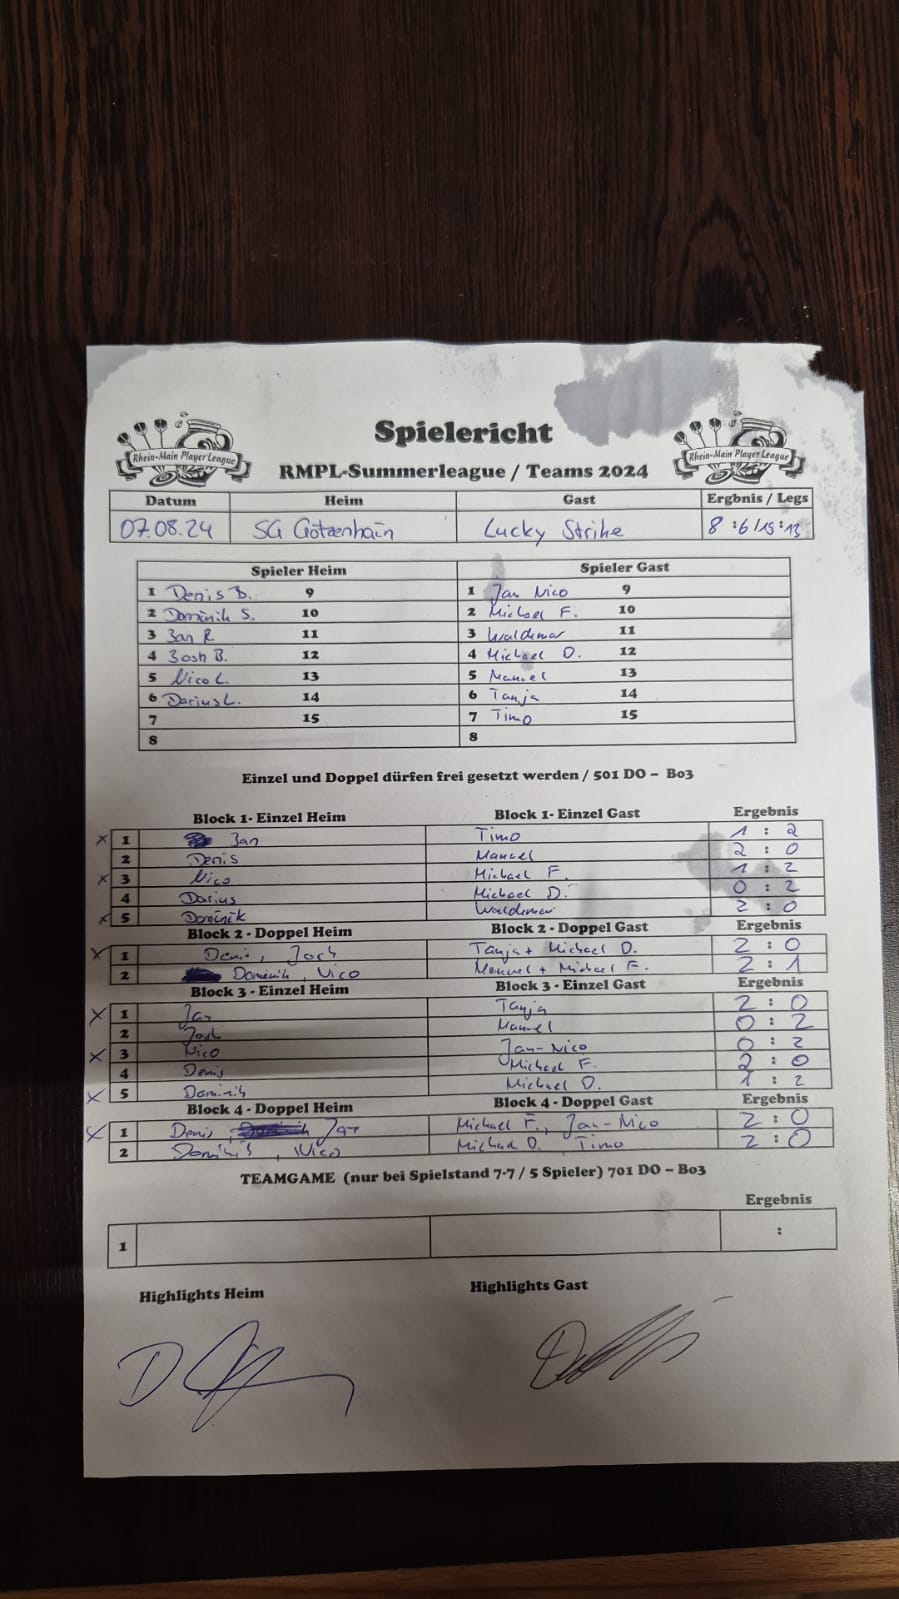 Rhein-Main Player League
Rhein-Main Player League
Spielericht
RMPL-Summerleague / Teams 2024
Datum Heim Gast Ergbnis / Legs
07.08.24 SG Götzenhain Lucky Strike 8 :6/19:13
Spieler Heim Spieler Gast
1 Denis B. 9 1 Jan Nico 9
2 Dominik S. 10 2 Michael F. 10
3 Jan R 11 3 Waldemar 11
4 Josh B. 12 4 Michael D. 12
5 Nico L. 13 5 Manuel 13
6 Darius L. 14 6 Tanja 14
7 15 7 Timo 15
8 8
Einzel und Doppel dürfen frei gesetzt werden / 501 DO – Bo3
Block 1- Einzel Heim Block 1- Einzel Gast Ergebnis
x 1 Jan Timo 1 : 2
2 Denis Manuel 2 : 0
x 3 Nico Michael F. 1 : 2
4 Darius Michael D. 0 : 2
x 5 Dominik Waldemar 2 : 0
Block 2 - Doppel Heim Block 2 - Doppel Gast Ergebnis
x 1 Denis, Josh Tanja + Michael D. 2 : 0
2 Dominik, Nico Manuel + Michael F. 2 : 1
Block 3 - Einzel Heim Block 3 - Einzel Gast Ergebnis
x 1 Jan Tanja 2 : 0
2 Josh Manuel 0 : 2
x 3 Nico Jan-Nico 0 : 2
4 Denis Michael F. 2 : 0
x 5 Dominik Michael D. 1 : 2
Block 4 - Doppel Heim Block 4 - Doppel Gast Ergebnis
x 1 Denis, Jan Michael F., Jan-Nico 2 : 0
2 Dominik, Nico Michael D., Timo 2 : 0
TEAMGAME (nur bei Spielstand 7-7 / 5 Spieler) 701 DO – Bo3
Ergebnis
1 :
Highlights Heim Highlights Gast